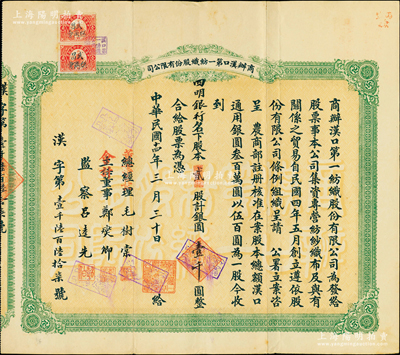 上海陽明拍賣
商辦漢口第一紡織股份有限公司
商辦漢口第一紡織股份有限公司為發給
股票事本公司集資專營紡紗織布及與有
關係之貿易自民國四年五月創立遵依股
份有限公司條例組織呈請 公署立案咨
呈 農商部註冊核准在案股本總額漢口
通用銀圓叁百萬圓以伍百圓為一股今收
到
四明銀行名下股本 貳 股計銀圓 壹千 圓整
合給股票為憑
中華民國 年 三 月 三十 日 給
總經理 毛樹棠
主任董事 鄭燮卿
監察 呂逵先
漢 字第 壹千陸百陸拾柒 號
漢字第
www.ymauction.com